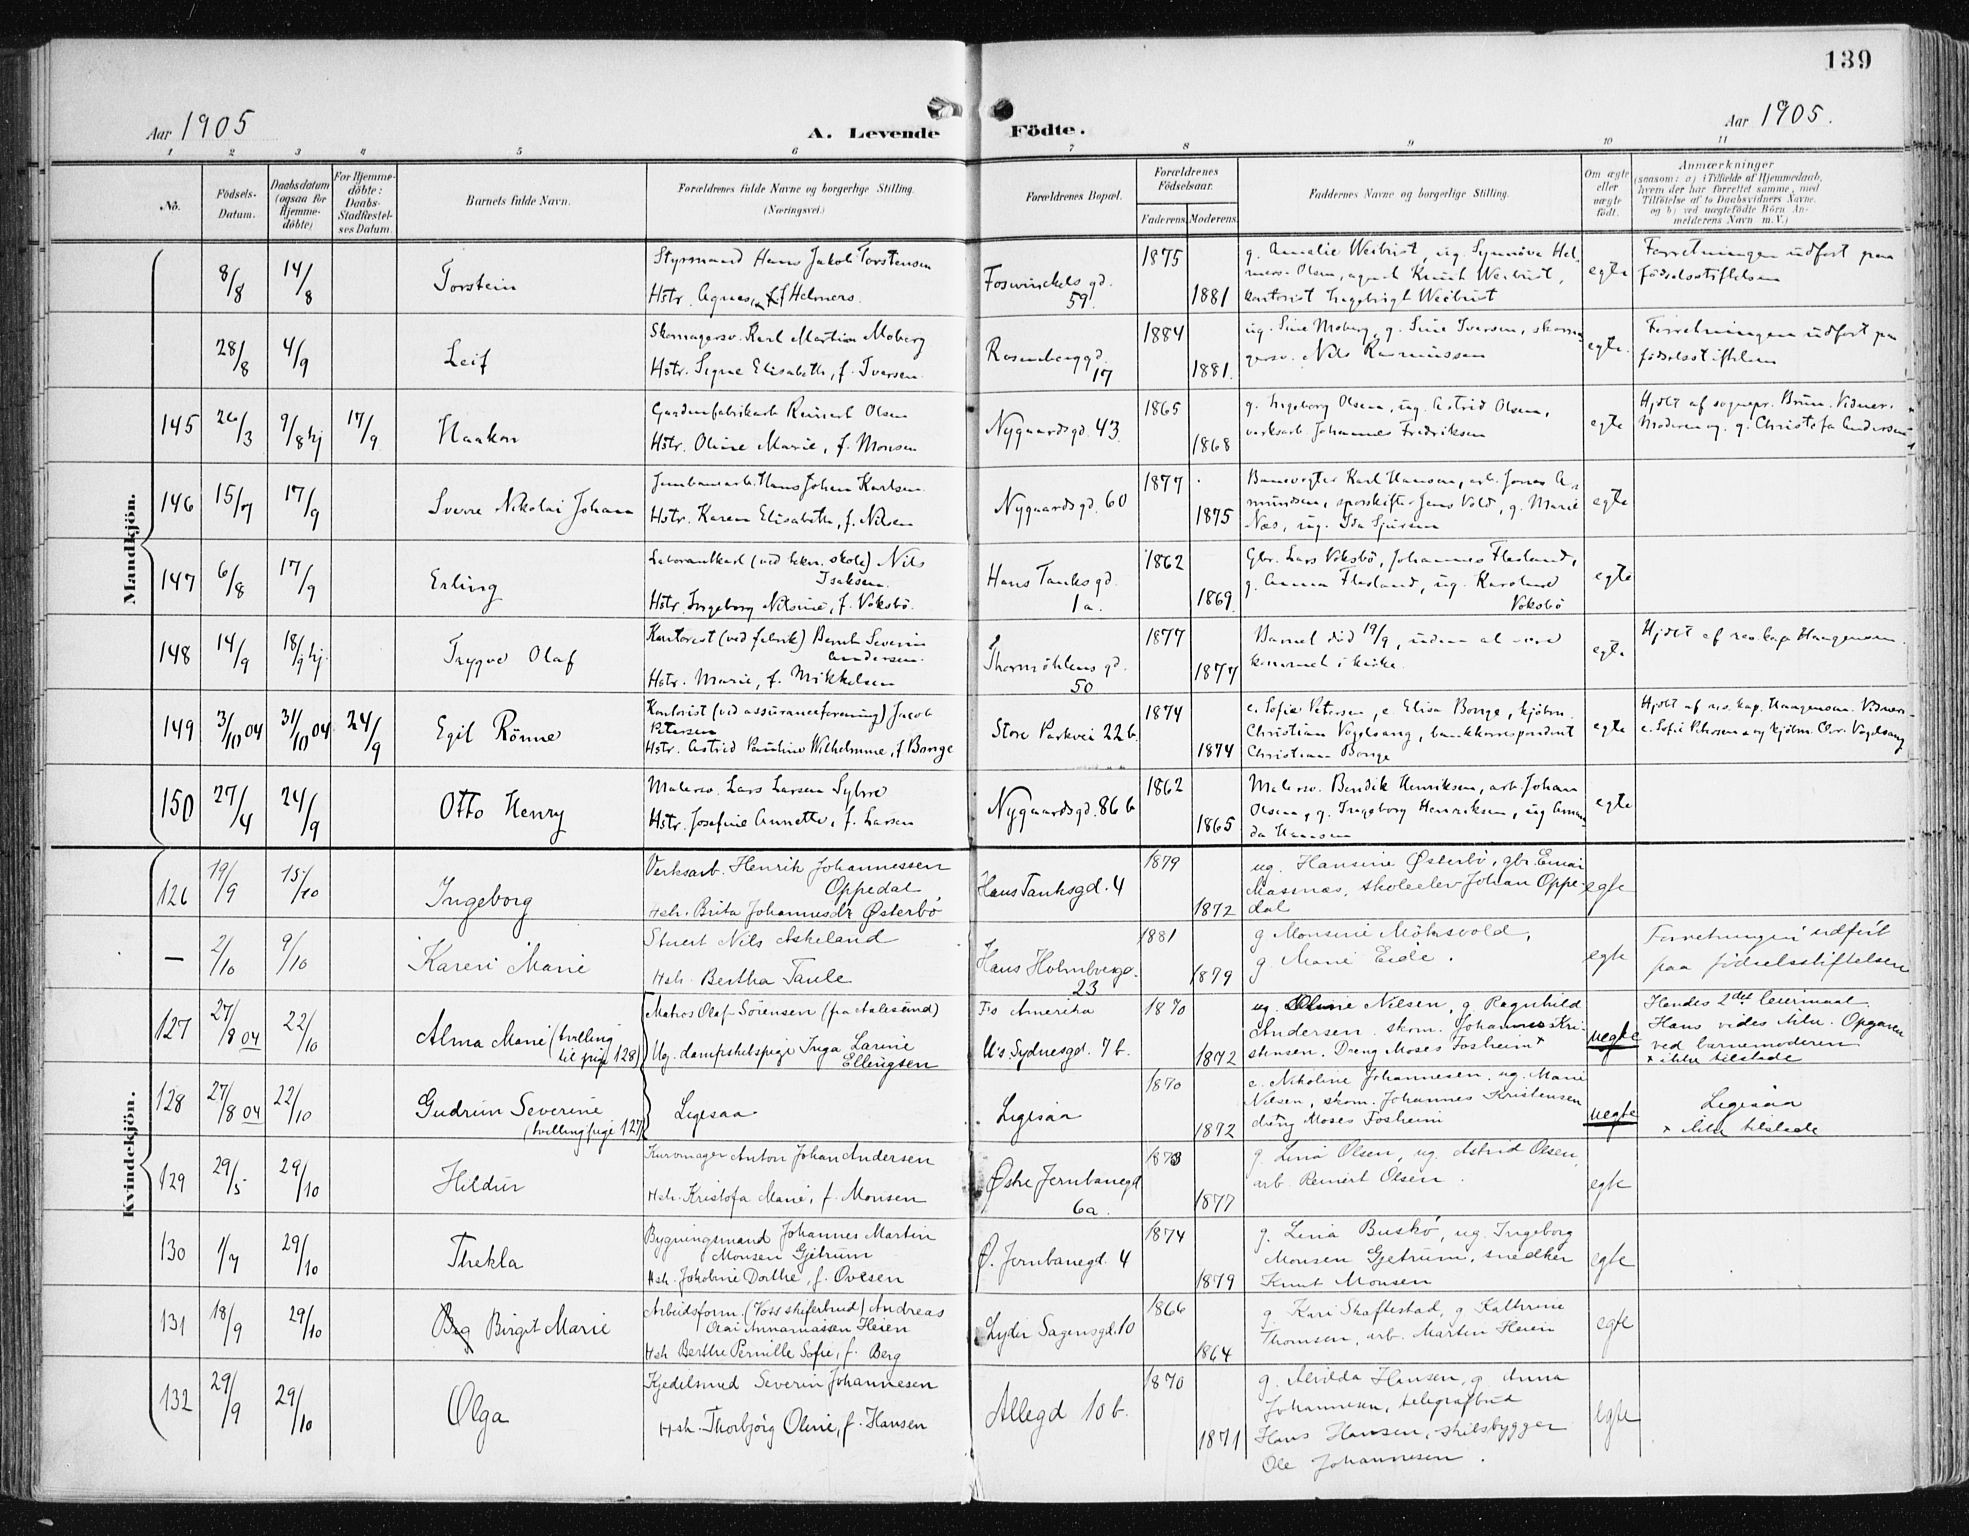 139
Aar 1905
A. Levende Födte.
Aar 1905.
1 2 3 4 5 6 7 8 9 10 11
No.
Födsels-Datum.
Daabsdatum (ogsaa for Hjemme-döbte)
For Hjemme-döbte: Daabs-Stadfæstel-ses Datum.
Barnets fulde Navn.
Forældrenes fulde Navne og borgerlige Stilling.
(Næringsvei.)
Forældrenes Bopæl.
Forældrenes Födselsaar.
Faderens. Moderens.
Faddernes Navne og borgerlige Stilling.
Om ægte eller uægte födt.
Anmærkninger
(saasom: a) i Tilfælde af Hjemmedaab,
hvem der har forrettet samme, med
Tilföielse af to Daabsvidners Navne,
og b) ved uægtefödte Börn An-
melderens Navn m. V.)
Mandkjön.
8/8 14/8 Torstein
Styrmand Hans Jakob Torstensen
Hstr. Agnes, f. Helmers.
Foswinckelsgd. 59.
1875 1881
g. Amalie Weibust, ug. Synnöve Hel-
mers Olsen, agent Knut Weibust,
kontorist Ingebrigt Weibust
egte
Forretningen udfört paa
födselsstiftelsen
28/8 4/9 Leif
Skomagersv. Karl Martin Moberg
Hstr. Signe Elisabeth, f. Iversen.
Rosenberggd. 17
1884 1881.
ug. Sine Moberg, g. Sine Iversen, skoma-
gersv. Nils Rasmussen
egte.
Forretningen udfört paa
födselsstiftelsen
145 26/3 9/8 hj 17/9 Haakon
Reinert Olsen
Hstr. Oline Marie, f. Monsen
Nygaardsgd. 43
1865 1868
g. Ingeborg Olsen, ug. Astrid Olsen,
verksarb. Johannes Fredriksen
egte
Hjdbt af sognepr. Brun. Vidner:
Moderen og g. Christofa Andersen
146 15/7 17/9 Sverre Nikolai Johan
Jernbanearb. Hans Johan Karlsen
Hstr. Karen Elisabeth, f. Nilsen
Nygaardsgd. 60
1877 1875
Banevogter Karl Hansen, arb. Jonas A-
mundsen, sporskifter Jens Vold, g. Marie
Næs, ug. Ida Sjursen
egte
147 6/8 17/9 Erling
Laborantkarl (ved tekn. skole) Nils
Isaksen.
Hstr. Ingeborg Nilsine, f. Voksbö.
Hans Tanksgd. 1a.
1862 1869
Gbr. Lars Voksbö, Johannes Flesland,
g. Anna Flesland, ug. Karoline
Voksbö
egte
148 14/9 18/9 hj. Trygve Olaf
Kontorist (ved fabrik) Bernh. Severin
Andersen.
Hstr. Marie, f. Mikkelsen
Thormöhlensgd. 50
1877 1877
Barnet död 19/9, uden at være
kommet i kirke.
egte
Hjdbt af res. kap. Haagensen.
149 3/10 04 31/10 04 24/9 Egil Rönne
Kontorist (ved assuranceforening) Jacob
Petersen
Hstr. Astrid Pauline Wilhelmine, f. Bonge
Store Parkvei 22 b.
1874 1874
e. Sofie Petersen, e. Elisa Bonge, kjöbm.
Christian Vogelsang, bankkorrespondent
Christian Bonge
egte
Hjdbt af res. kap. Haagensen. Vidner:
e. Sofie Petersen og kjöbm. Chr. Vogelsang
150 27/4 24/9 Otto Henry
Malersv. Lars Larsen Sylvre
Hstr. Josefine Annette, f. Larsen
Nygaardsgd. 86 b
1862 1865
Malersv. Bendik Henriksen, arb. Johan
Olsen, g. Ingeborg Henriksen, ug. Aman-
da Hansen
egte
Kvindekjön.
126 19/9 15/10 Ingeborg
Verksarb. Henrik Johannessen
Oppedal
Hstr. Brita Johannesdr Østerbö
Hans Tanksgd. 4
1879 1872
ug. Hansine Østerbö, gbr. Einar
Masnæs, skoleelev Johan Oppe-
dal
egte
— 2/10 9/10 Karen Marie
Stuert Nils Askeland
Hstr. Bertha Taule
Hans Holmboegd. 23
1881 1879
g Monsine Möksvold,
g Marie Eide.
egte
Forretningen udfört
paa födselsstiftelsen
127 27/8 04 22/10 Alma Marie (tvilling
til pige 128)
Matros Olaf Sörensen (fra Aalesund)
Ug. dampskibspige Inga Larine
Ellingsen
F's Amerika
M's Sydnesgd. 7 b.
1870 1872
ug. Oline Nilsen, g Ragnhild
Andersen. skom. Johannes Kri-
stensen. Dreng Moses Fosheim x
uegte
Hendes 2det leiermaal
Hans vides ikke. Opgaven
ved barnemoderen
x ikke tilstede
128 27/8 04 22/10 Gudrun Severine
(tvilling pige 127)
Ligesaa
Ligesaa
1870 1872
e. Nikoline Johannesen. ug. Marie
Nilsen, skom. Johannes Kristensen
dreng Moses Fosheim
uegte
Ligesaa
x ikke tilstede
129 29/5 29/10 Hildur
Kurvmager Anton Johan Andersen
Hstr. Kristofa Marie, f. Monsen
Østre Jernbanegd 6a.
1873 1877
g. Lina Olsen, ug. Astrid Olsen,
arb. Reinert Olsen.
egte
130 1/7 29/10 Thekla
Bygningsmand Johannes Martin
Monsen Gjetrum
Hstr. Jakobine Dorthe, f. Ovesen
Ø. Jernbanegd. 4
1874 1879
g. Lina Buskö, ug. Ingeborg
Monsen Gjetrum, snedker
Knut Monsen
egte
131 18/9 29/10 Birgit Marie
Arbeidsform. (Voss skiferbrud) Andreas
Olai Annanias​sen Heien
Hstr. Berthe Pernille Sofie, f. Berg
Lyder Sagensgd. 10
1866 1864
g Kari Skaftestad, g Kathrine
Thomsen, arb. Martin Heien
egte
132 29/9 29/10 Olga
Kjedelsmed Severin Johannesen
Hstr. Thorbjörg Oline, f. Hansen
Allegd 10 b.
1870 1871
g. Alvilda Hansen, g Anna
Johannesen, telegrafbud
Hans Hansen, skibsbygger
Ole Johannesen.
egte